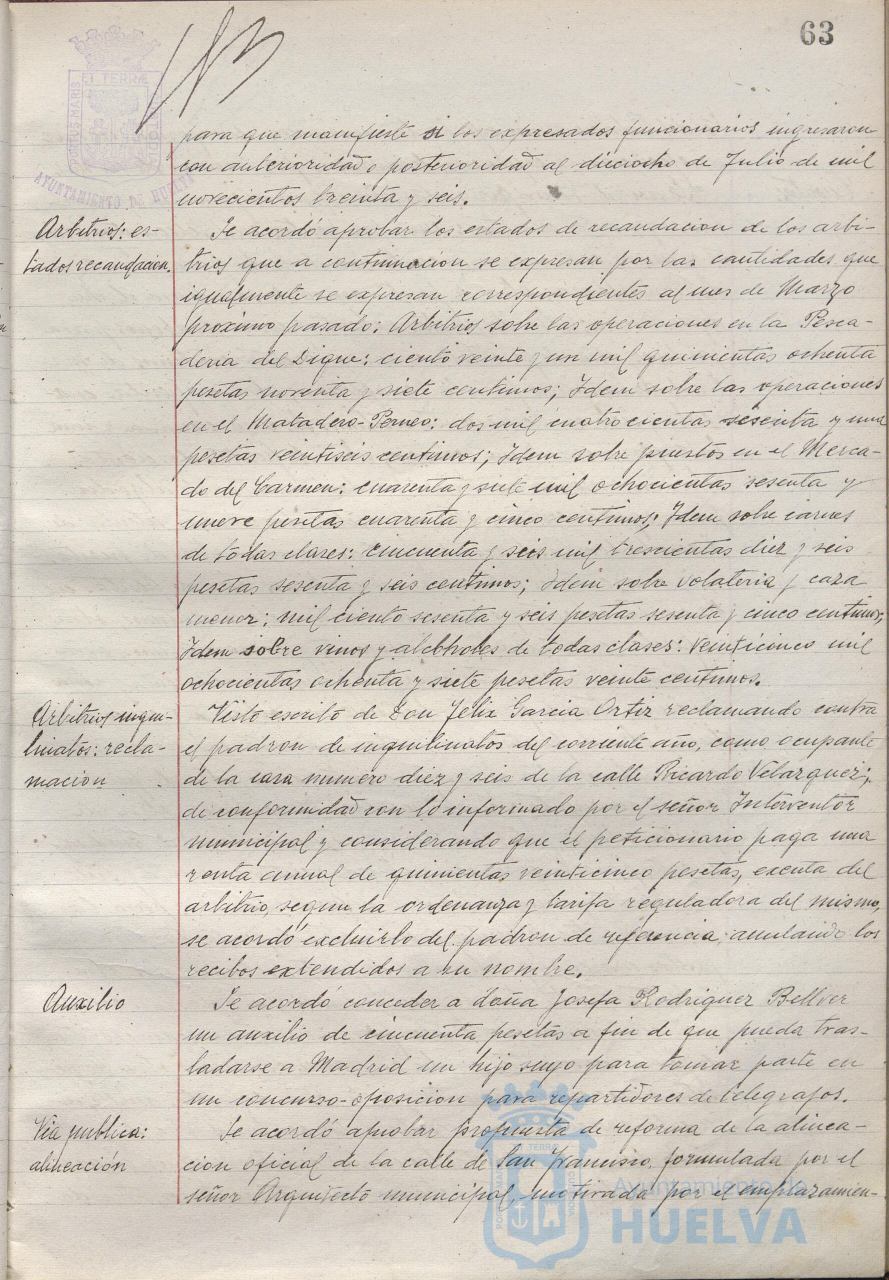 63
para que manifieste si los expresados funcionarios ingresaron
con anterioridad o posterioridad al dieciocho de Julio de mil
novecientos treinta y seis.
Arbitrios: es-
tados recaudacion.
Se acordó aprobar los estados de recaudacion de los arbi-
trios que a continuacion se expresan por las cantidades que
igualmente se expresan correspondientes al mes de Marzo
proximo pasado: Arbitrios sobre las operaciones en la Pesca-
deria del Dique: ciento veinte y un mil quinientas ochenta
pesetas noventa y siete centimos; Idem sobre las operaciones
en el Matadero-Perneo: dos mil cuatrocientas sesenta y una
pesetas veintiseis centimos; Idem sobre puestos en el Merca-
do del Carmen: cuarenta y siete mil ochocientas sesenta y
nueve pesetas cuarenta y cinco centimos; Idem sobre carnes
de todas clases: cincuenta y seis mil trescientas diez y seis
pesetas sesenta y seis centimos; Idem sobre volateria y caza
menor; mil ciento sesenta y seis pesetas sesenta y cinco centimos;
Idem sobre vinos y alcoholes de todas clases: veinticinco mil
ochocientas ochenta y siete pesetas veinte centimos.
Arbitrios inqui-
linatos: recla-
macion
Visto escrito de Don Félix Garcia Ortiz reclamando contra
el padron de inquilinatos del corriente año, como ocupante
de la casa numero diez y seis de la calle Ricardo Velazquez;
de conformidad con lo informado por el señor Interventor
municipal y considerando que el peticionario paga una
renta anual de quinientas veinticinco pesetas, exenta del
arbitrio, segun la ordenanza y tarifa reguladora del mismo,
se acordó excluirlo del padron de referencia, anulando los
recibos extendidos a su nombre.
Auxilio
Se acordó conceder a Doña Josefa Rodriguez Bellver
un auxilio de cincuenta pesetas a fin de que pueda tras-
ladarse a Madrid un hijo suyo para tomar parte en
un concurso-oposicion para repartidores de telegrafos.
Via publica:
alineación
Se acordó aprobar propuesta de reforma de la alinea-
cion oficial de la calle de San Francisco, formulada por el
señor Arquitecto municipal, motivada por el emplazamien-
Ayuntamiento de
HUELVA
PORTUS MARIS
ET TERRÆ
AYUNTAMIENTO DE HUELVA